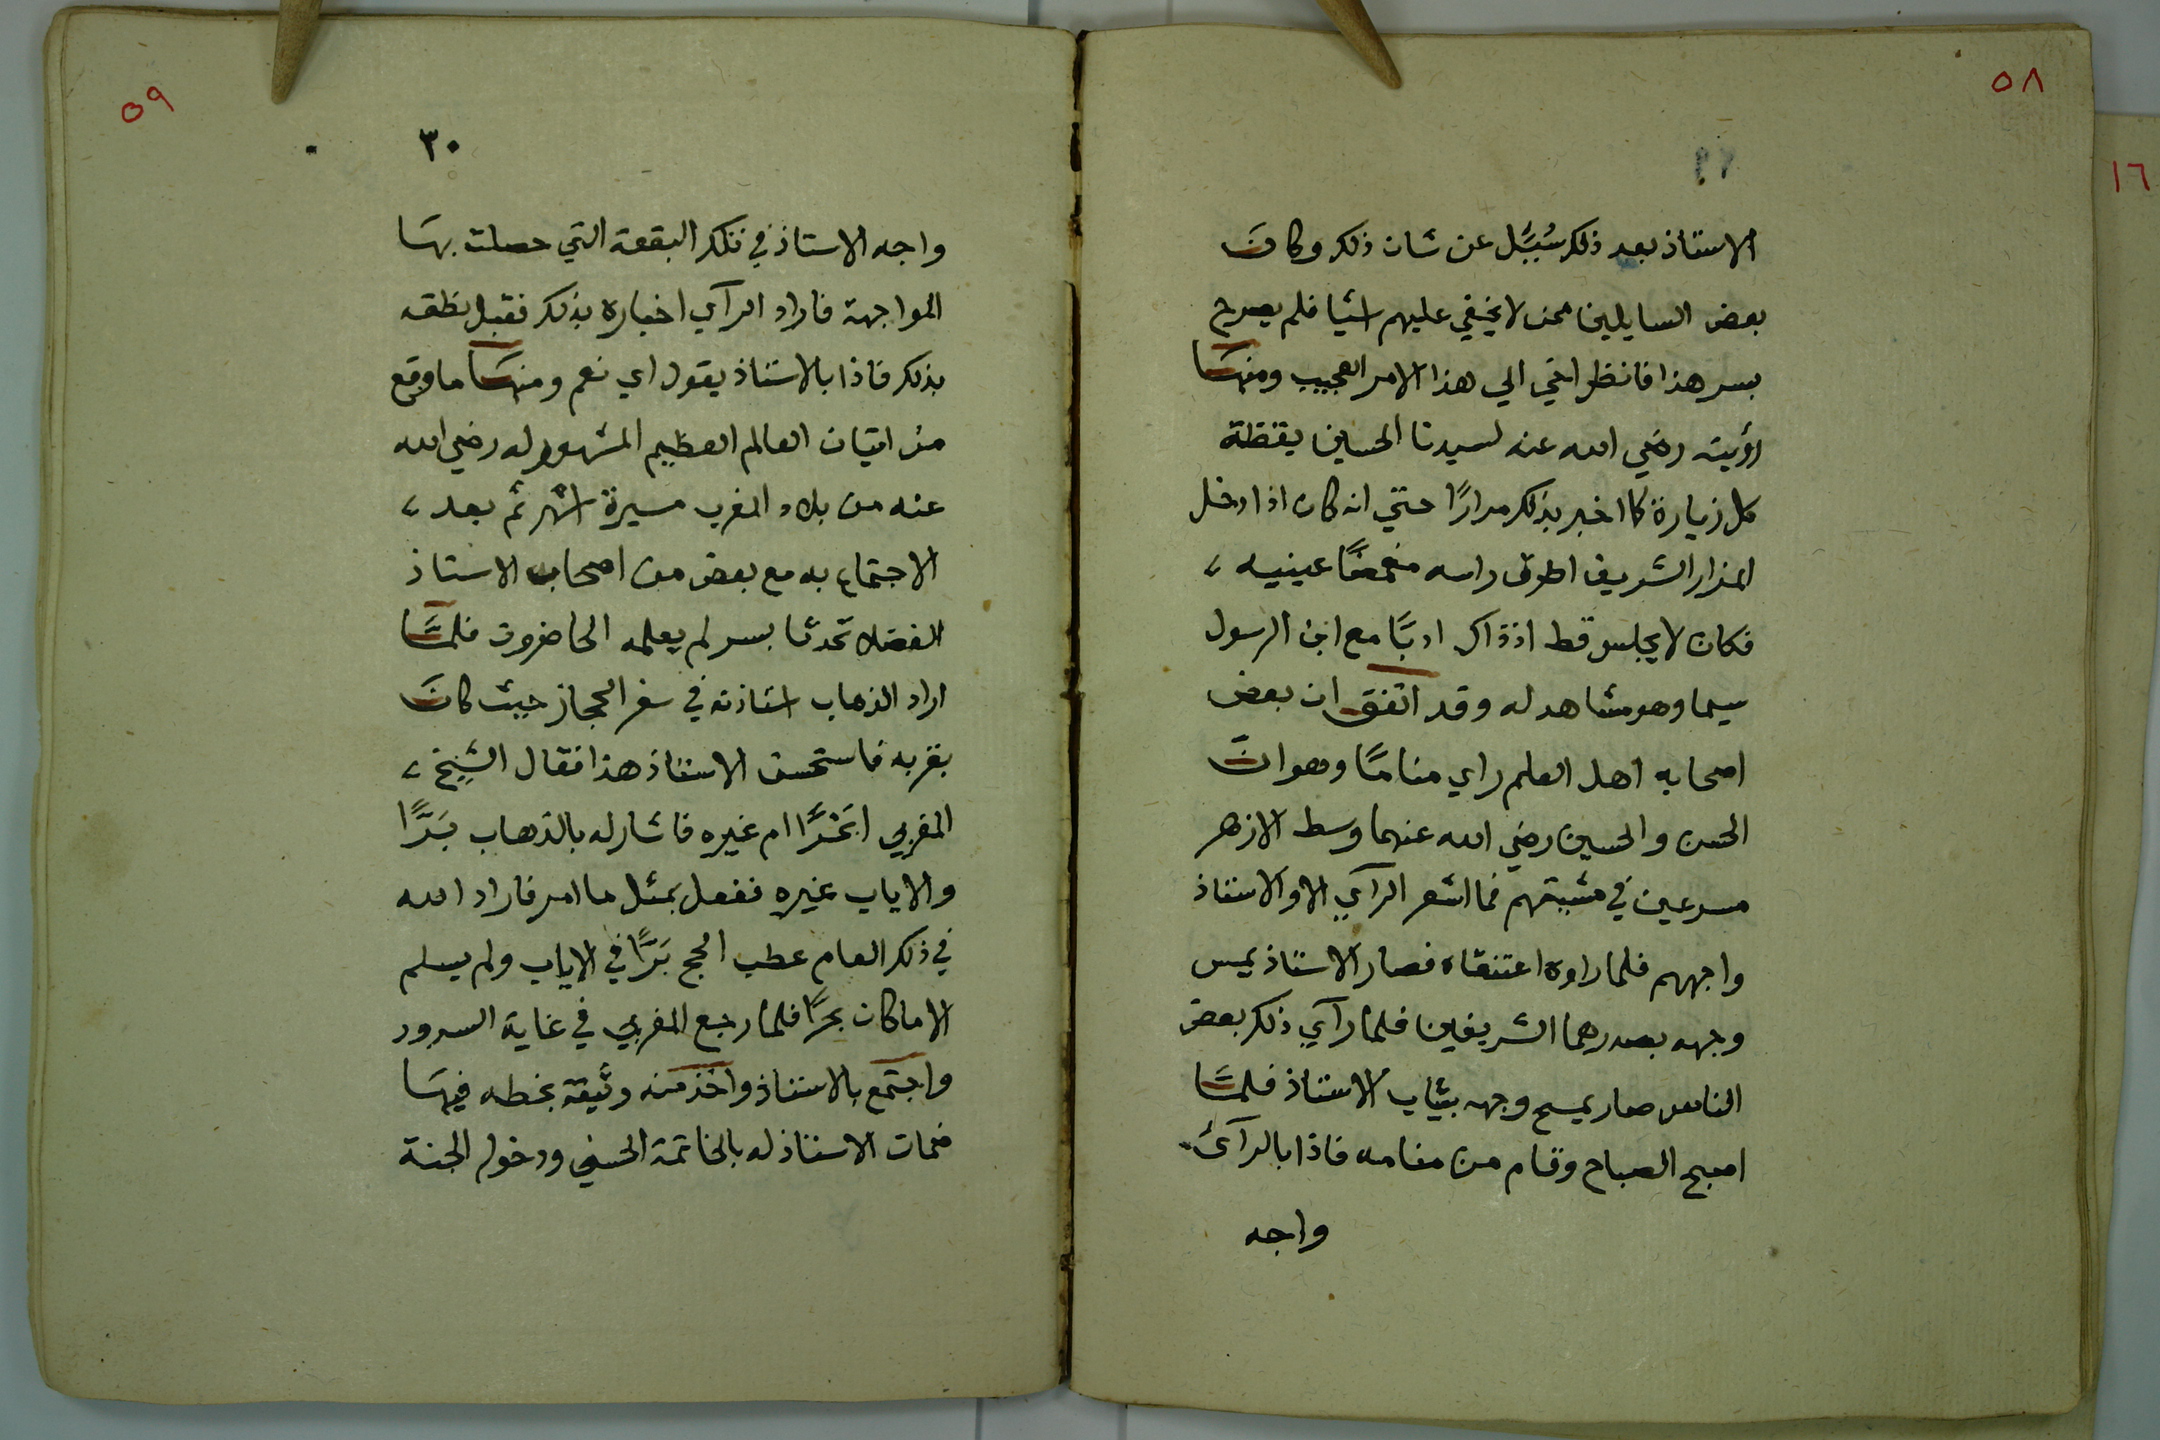 ٥٨
الاستاذ بعد ذلك سُيِّل عن شان ذلك وكانَ
بعض السايلين ممن لا يخفي عليهم اشيا فلم يصرح
بسر هذا فانظر اخي الي هذا الامر العجيب ومنهَا
رؤيته رضي الله عنه لسيدنا الحسين يقظة
كل زيارة كما اخبر بذلك مرارًا حتي انه كان اذا دخل
المزار الشريف اطرق راسه مغمضًا عينيه
فكان لا يجلس قط اذ ذاك ادبًا مع ابن الرسول
سيما وهو مشاهد له وقد اتفق ان بعض
اصحابه اهل العلم راي منامًا وهو انَ
الحسن والحسين رضي الله عنهما وسط الازهر
مسرعين في مشيتهم فما اشعر الرآي الا والاستاذ
واجههم فلما راوه اعتنقاه فصار الاستاذ يمس
وجهه بصدرهما الشريفين فلما رآي ذلك بعض
الناس صار يمسح وجهه بثياب الاستاذ فلمَّا
اصبح الصباح وقام من منامه فاذا بالرآئ
واجه
١٦
٥٩
٣٠
واجه الاستاذ في تلك البقعة التي حصلت بهَا
المواجهة فاراد الرآي اخباره بذلك فقبل نطقه
بذلك فاذا بالاستاذ يقول اي نعم ومنهَا ما وقع
من اتيان العالم العظيم المشهور له رضي الله
عنه من بلاد المغرب مسيرة اشهر ثم بعد
الاجتماع به مع بعض من اصحاب الاستاذ
الفضلا تحدثا بسر لم يعلمه الحاضرون فلمَّا
اراد الذهاب استاذنه في سفر الحجاز حيث كانَ
بقربه فاستحسن الاستاذ هذا فقال الشيخ
المغربي ابَحْرًا ام غيره فاشار له بالذهاب بَرًّا
والاياب غيره ففعل بمثل ما امر فاراد الله
في ذلك العام عطب الحج بَرًّا في الاياب ولم يسلم
الا ما كان بحرًا فلما رجع المغربي في غاية السرور
واجتمع بالاستاذ واخذ منه وثيقة بخطه فيهَا
ضمات الاستاذ له بالخاتمة الحسني ودخول الجنة